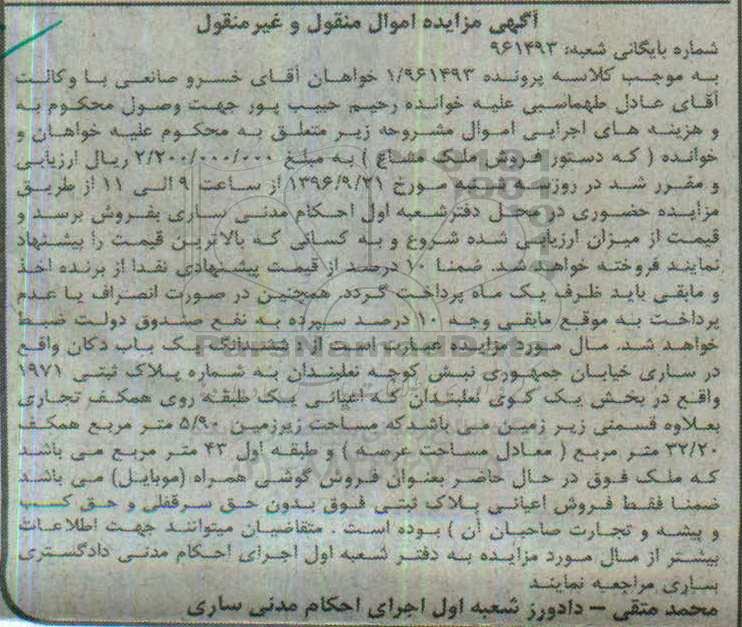 آگهی مزایده اموال منقول و غیرمنقول
شماره بایگانی شعبه: ۹۶۱۴۹۳
به موجب کلاسه پرونده ۱/۹۶۱۴۹۳ خواهان آقای خسرو صانعی با وکالت
آقای عادل طهماسبی علیه خوانده رحیم حبیب پور جهت وصول محکوم به
و هزینه های اجرایی اموال مشروحه زیر متعلق به محکوم علیه خواهان و
خوانده ( که دستور فروش ملک مشاع ) به مبلغ ۲/۲۰۰/۰۰۰/۰۰۰ ریال ارزیابی
و مقرر شد در روز شنبه مورخ ۱۳۹۶/۹/۲۱ از ساعت ۹ الی ۱۱ از طریق
مزایده حضوری در محل دفترشعبه اول احکام مدنی ساری بفروش برسد و
قیمت از میزان ارزیابی شده شروع و به کسانی که بالاترین قیمت را پیشنهاد
نمایند فروخته خواهد شد. ضمنا ۱۰ درصد از قیمت پیشنهادی نقدا از برنده اخذ
و مابقی باید ظرف یک ماه پرداخت گردد. همچنین در صورت انصراف یا عدم
پرداخت به موقع مابقی وجه ۱۰ درصد سپرده به نفع صندوق دولت ضبط
خواهد شد. مال مورد مزایده عبارت است از: ششدانگ یک باب دکان واقع
در ساری خیابان جمهوری نبش کوچه نعلبندان به شماره پلاک ثبتی ۱۹۷۱
واقع در بخش یک کوی نعلبندان که اعیانی یک طبقه روی همکف تجاری
بعلاوه قسمتی زیر زمین می باشدکه مساحت زیرزمین ۵/۹۰ متر مربع همکف
۳۲/۲۰ متر مربع ( معادل مساحت عرصه ) و طبقه اول ۴۳ متر مربع می باشد
که ملک فوق در حال حاضر بعنوان فروش گوشی همراه (موبایل) می باشد
ضمنا فقط فروش اعیانی پلاک ثبتی فوق بدون حق سرقفلی و حق کسب
و پیشه و تجارت صاحبان آن ) بوده است . متقاضیان میتوانند جهت اطلاعات
بیشتر از مال مورد مزایده به دفتر شعبه اول اجرای احکام مدنی دادگستری
ساری مراجعه نمایند
محمد متقی – دادورز شعبه اول اجرای احکام مدنی ساری
ParsNamadData